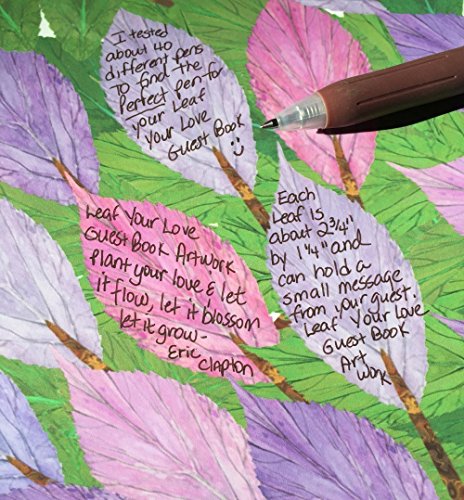 I tested
about 40
different pens
To find the
Perfect pen for
your Leaf
Your Love
Guest Book
Leaf Your Love
Guest Book Artwork
plant your love & let
it flow, let it blossom
let it grow-
Eric
Clapton
Each
Leaf is
about 2 3/4"
by 1 1/4" and
can hold a
small message
from your guest.
Leaf Your Love
Guest Book
Art
Work